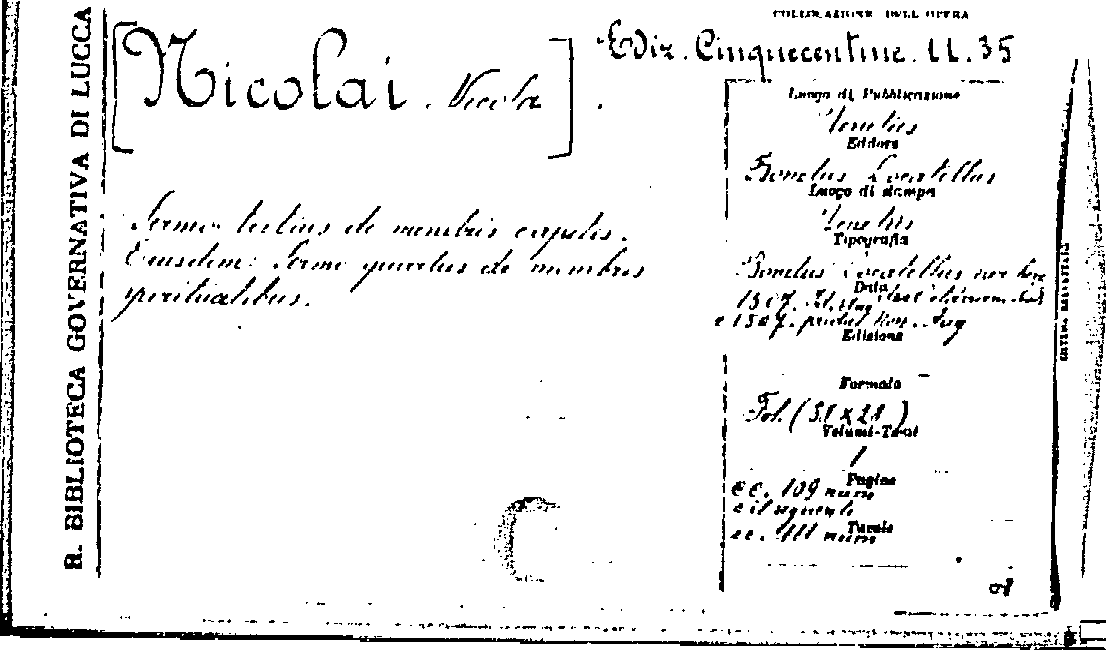 R. BIBLIOTECA GOVERNATIVA DI LUCCA
[Nicolai. Nicola].
Sermo tertius de membris capitis.
Eiusdem: Sermo quartus de membris
spiritualibus.
COLLOCAZIONE DELL'OPERA
Ediz. Cinquecentine. 11. 35
Luogo di Pubblicazione
Venetiis
Editore
Bonetus Locatellus
Luogo di stampa
Venetiis
Tipografia
Bonetus Locatellus
Data
1507.
e 1507. pridie Non. Aug
Edizione
Formato
Fol. (31 x 21)
Volumi-Tomi
1
Pagine
cc. 109 num
e il seguente
Tavole
cc. 111 num